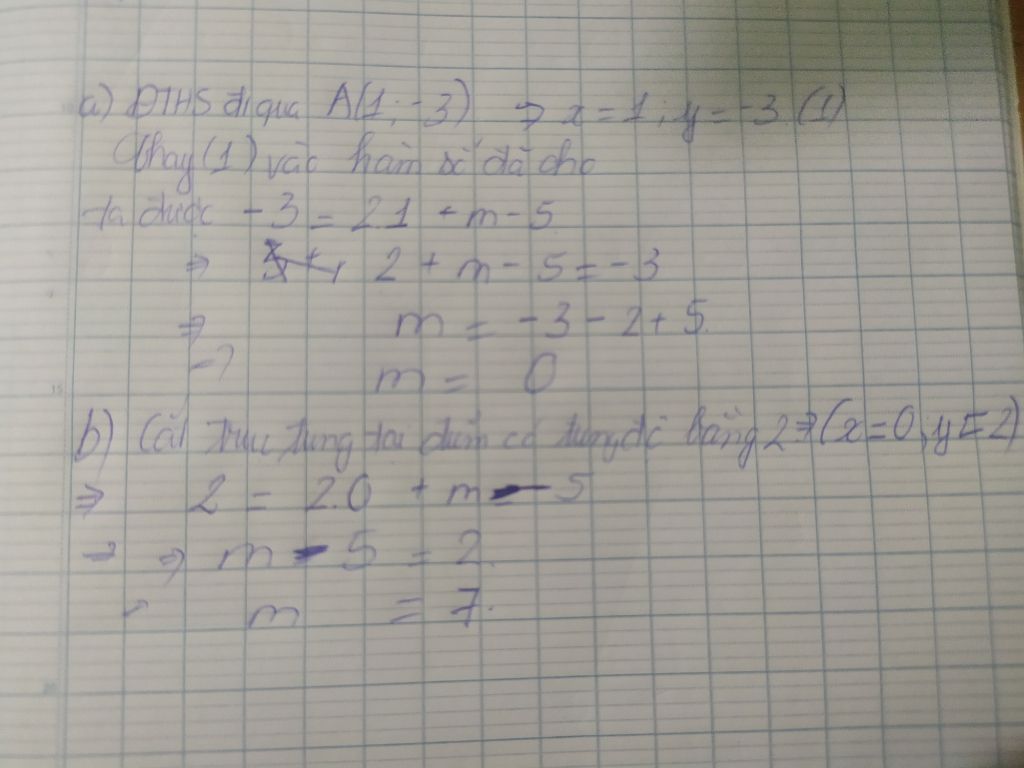 a) ĐTHS đi qua A(1; -3) => x = 1; y = -3 (1)
Thay (1) vào hàm số đã cho
ta được -3 = 2.1 + m - 5
=> 2 + m - 5 = -3
=> m = -3 - 2 + 5.
=> m = 0
b) Cắt trục tung tại điểm có tung độ bằng 2 => (x = 0; y = 2)
=> 2 = 2.0 + m - 5
=> m - 5 = 2.
m = 7.